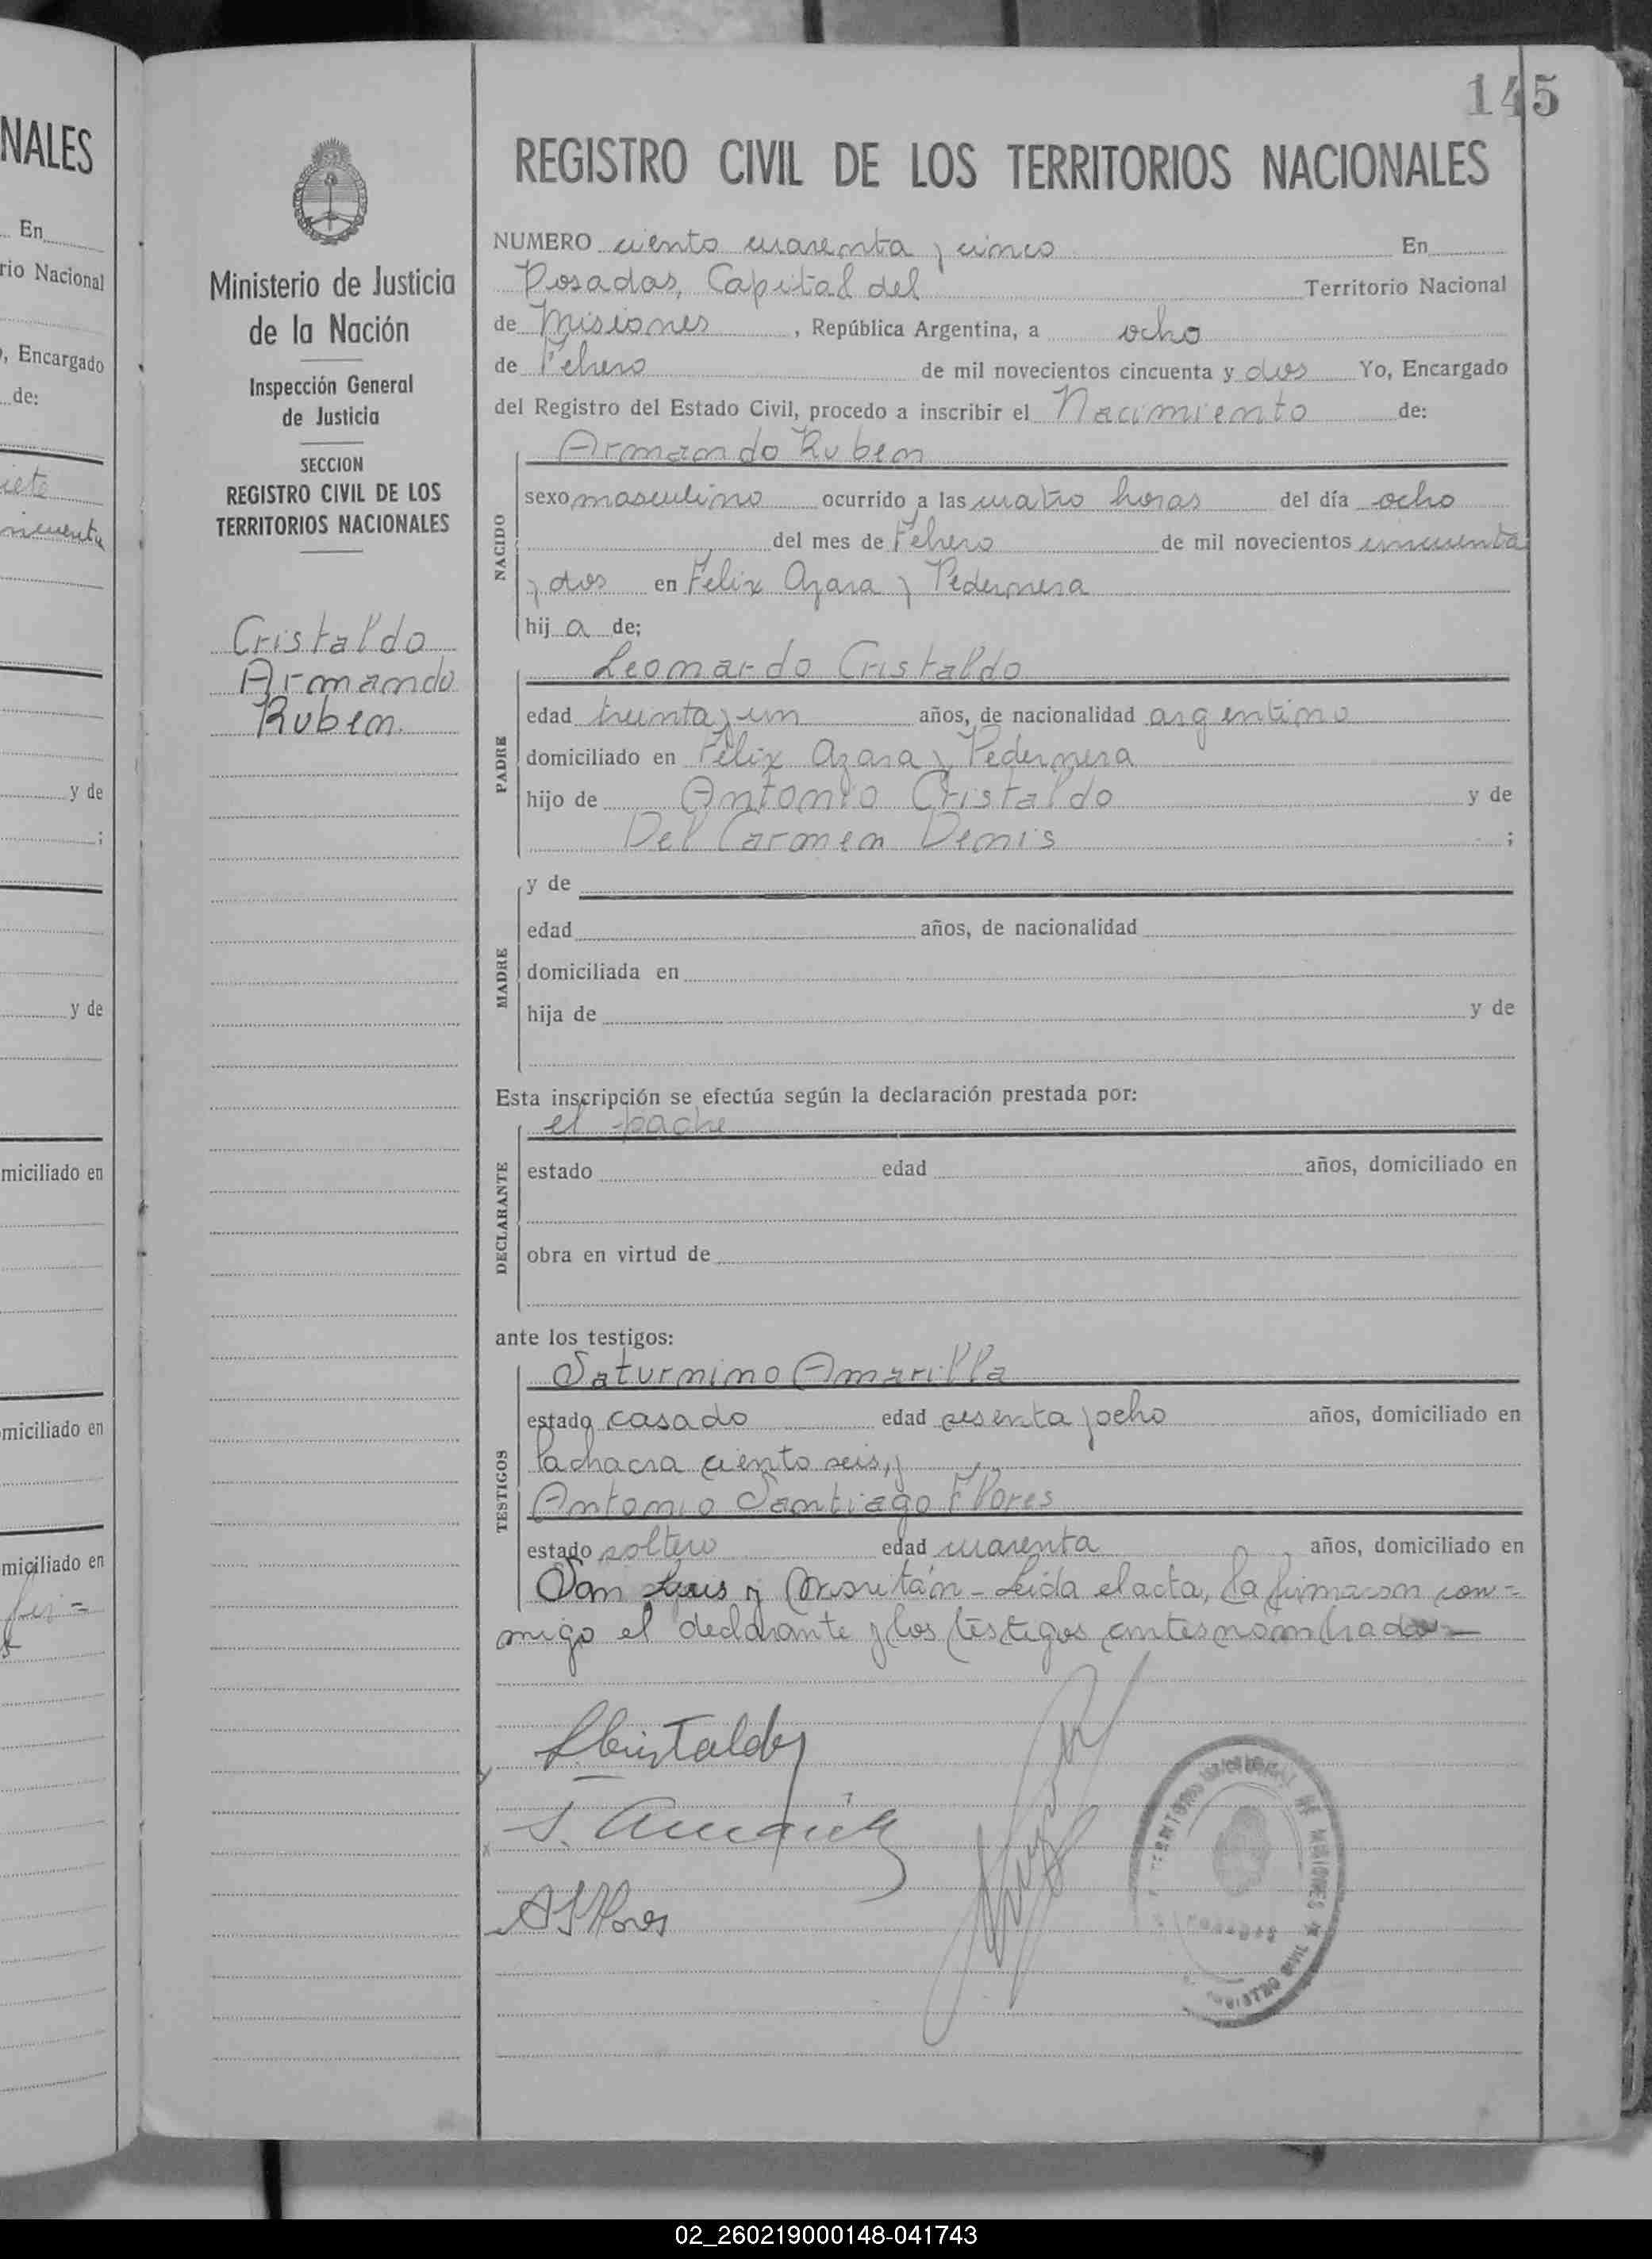 NALES
En
rio Nacional
, Encargado
de:
iete
y de
;
y de
miciliado en
miciliado en
miciliado en
145
Ministerio de Justicia
de la Nación
Inspección General
de Justicia
SECCION
REGISTRO CIVIL DE LOS
TERRITORIOS NACIONALES
Cristaldo
Armando
Ruben.
REGISTRO CIVIL DE LOS TERRITORIOS NACIONALES
NUMERO ciento cuarenta y cinco En
Posadas, Capital del Territorio Nacional
de Misiones, República Argentina, a ocho
de Febrero de mil novecientos cincuenta y dos Yo, Encargado
del Registro del Estado Civil, procedo a inscribir el Nacimiento de:
Armando Ruben
NACIDO
sexo masculino ocurrido a las cuatro horas del día ocho
del mes de Febrero de mil novecientos cincuenta
y dos en Felix Azara y Pedernera
hij a de;
Leonardo Cristaldo
PADRE
edad treinta y un años, de nacionalidad argentino
domiciliado en Felix Azara y Pedernera
hijo de Antonio Cristaldo y de
Del Carmen Denis ;
y de
MADRE
edad años, de nacionalidad
domiciliada en
hija de y de
Esta inscripción se efectúa según la declaración prestada por:
el padre
DECLARANTE
estado edad años, domiciliado en
obra en virtud de
ante los testigos:
Saturnino Amarilla
TESTIGOS
estado casado edad sesenta y ocho años, domiciliado en
la chacra ciento seis, y
Antonio Santiago Flores
estado soltero edad cuarenta años, domiciliado en
San Luis y - Leida el acta, la firmaron con=
migo el declarante y los testigos antes nombrados-
LCristaldo
S. Amarilla
ASFlores
TERRITORIO NACIONAL DE MISIONES
POSADAS
REGISTRO CIVIL
02_260219000148-041743